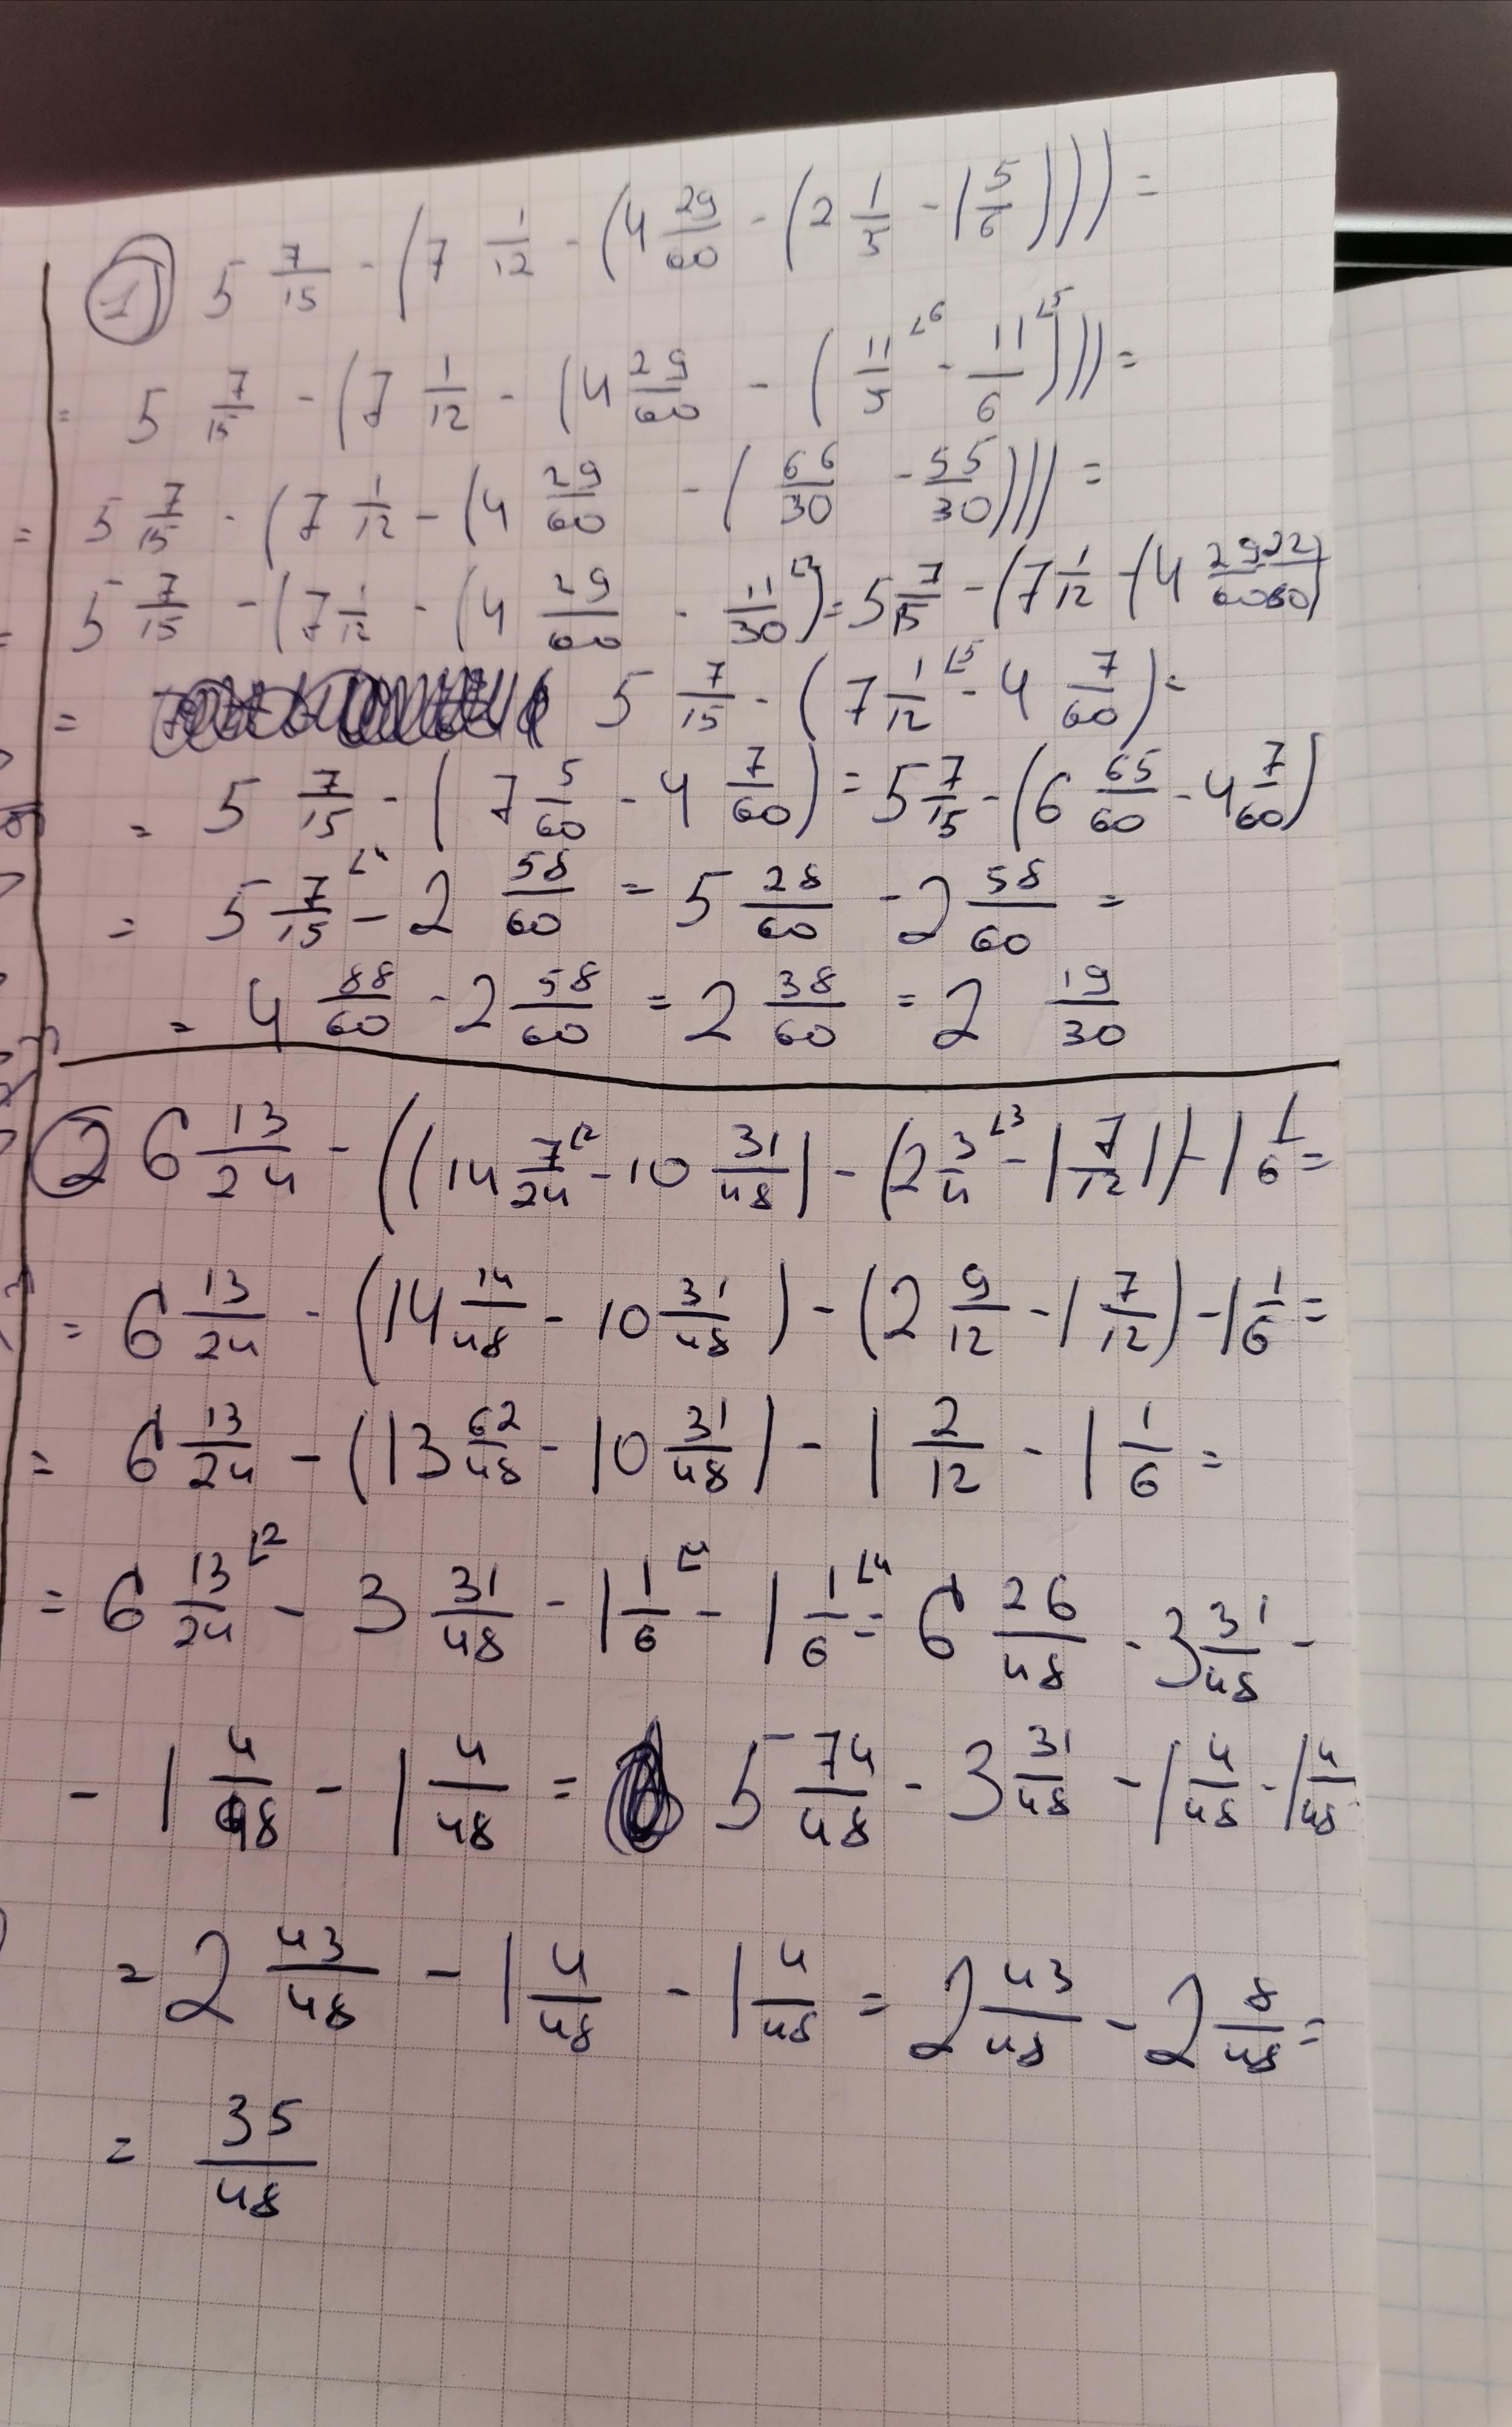 ① 5 7/15 - (7 1/12 - (4 29/60 - (2 1/5 - 1 5/6))) =
= 5 7/15 - (7 1/12 - (4 29/60 - (11/5 ∠6 - 11/6 ∠5))) =
= 5 7/15 - (7 1/12 - (4 29/60 - (66/30 - 55/30))) =
= 5 7/15 - (7 1/12 - (4 29/60 - 11/30 ∠2) = 5 7/15 - (7 1/12 - (4 29/60 22/60)
= 5 7/15 - (7 1/12 ∠5 - 4 7/60) =
= 5 7/15 - (7 5/60 - 4 7/60) = 5 7/15 - (6 65/60 - 4 7/60)
= 5 7/15 ∠4 - 2 58/60 = 5 28/60 - 2 58/60 =
= 4 88/60 - 2 58/60 = 2 38/60 = 2 19/30
② 6 13/24 - ((14 7/24 ∠2 - 10 31/48) - (2 3/4 ∠3 - 1 7/12)) - 1 1/6 =
= 6 13/24 - (14 14/48 - 10 31/48) - (2 9/12 - 1 7/12) - 1 1/6 =
= 6 13/24 - (13 62/48 - 10 31/48) - 1 2/12 - 1 1/6 =
= 6 13/24 ∠2 - 3 31/48 - 1 1/6 ∠4 - 1 1/6 ∠4 = 6 26/48 - 3 31/48 -
- 1 4/48 - 1 4/48 = 5 74/48 - 3 31/48 - 1 4/48 - 1 4/48
= 2 43/48 - 1 4/48 - 1 4/48 = 2 43/48 - 2 8/48 =
= 35/48